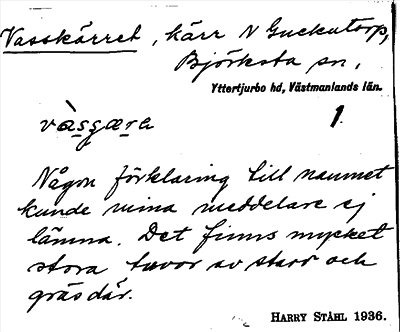 Vasskärret, kärr N Guckutorp,
Björksta sn,
Yttertjurbo hd, Västmanlands län.
1.
vàsɕæra
Någon förklaring till namnet
kunde mina meddelare ej
lämna. Det finns mycket
stora tuvor av starr och
gräs där.
HARRY STÅHL 1936.